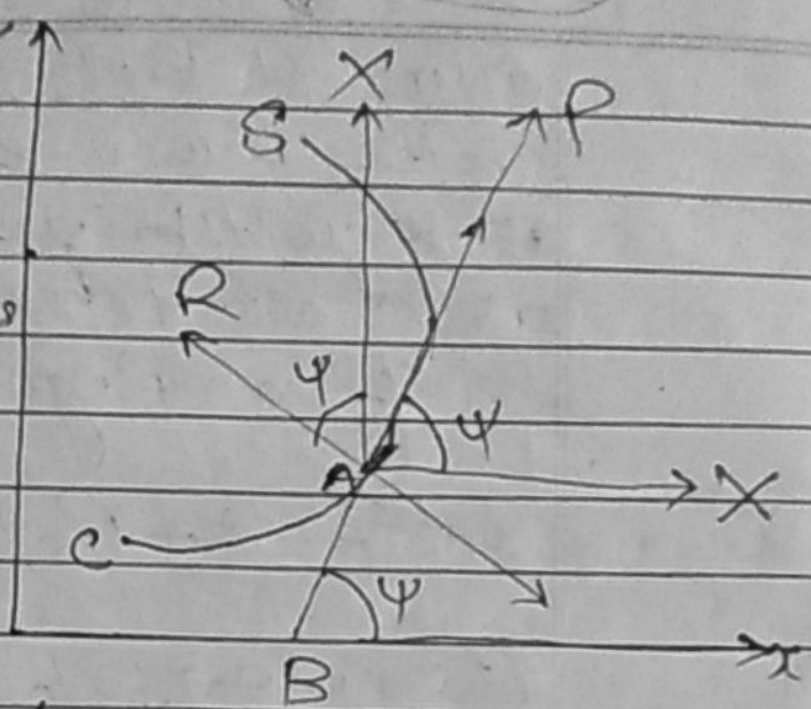 X
S
P
R
ψ
ψ
A
X
C
ψ
B
x